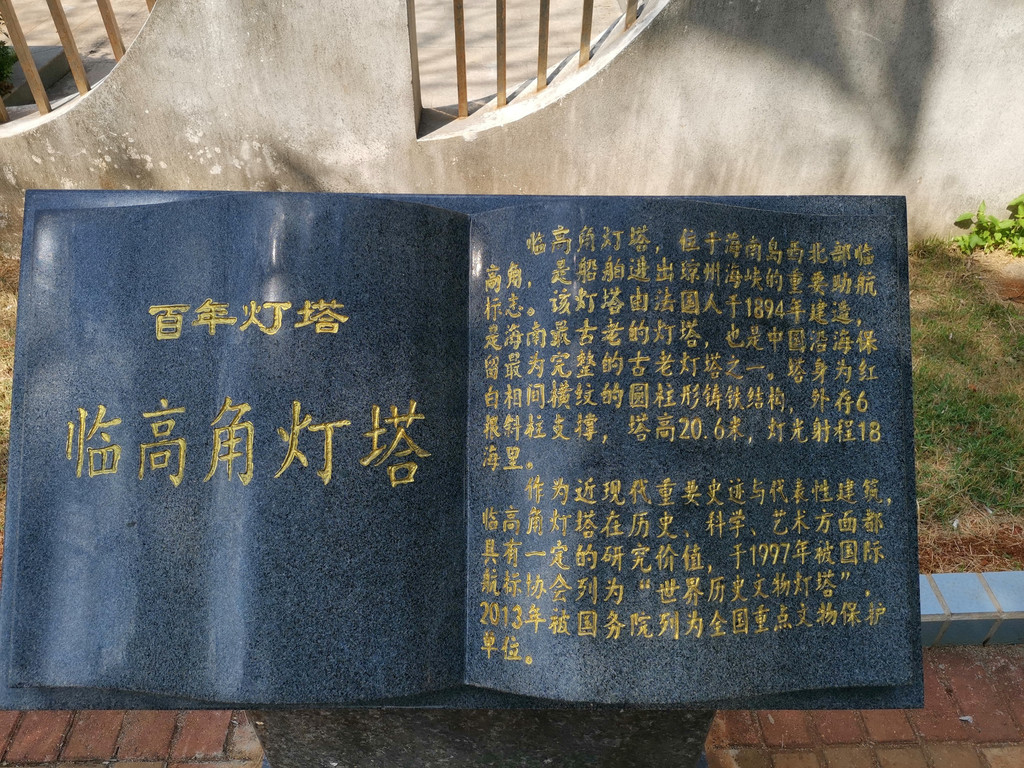 百年灯塔
临高角灯塔
临高角灯塔，位于海南岛西北部临
高角，是船舶进出琼州海峡的重要助航
标志。该灯塔由法国人于1894年建造，
是海南最古老的灯塔，也是中国沿海保
留最为完整的古老灯塔之一。塔身为红
白相间横纹的圆柱形铸铁结构，外存6
根斜柱支撑，塔高20.6米，灯光射程18
海里。
作为近现代重要史迹与代表性建筑，
临高角灯塔在历史、科学、艺术方面都
具有一定的研究价值，于1997年被国际
航标协会列为“世界历史文物灯塔”，
2013年被国务院列为全国重点文物保护
单位。